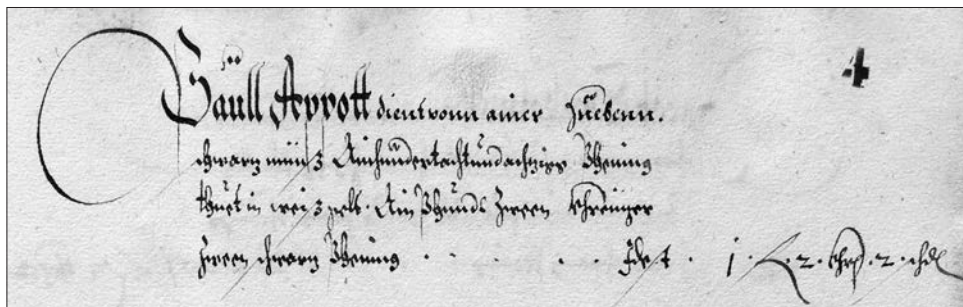 4
Paull Appott dient vonn ainer Huebenn.
schwarz münz Ainhundertachtundachzigg Phening
thuet in weiß gelt. Ain Phundt Zween Khreuzer
zween schwarz Phening . . . . . . Idest . 1 . 2 . khr . 2 .